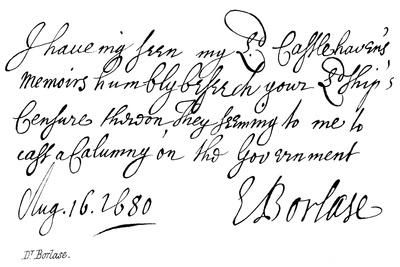 I haveing seen my Ld Castlehaven's
Memoirs humbly beseech your Ldship's
Censure thereon They seeming to me to
cast a Calumny on the Government
Aug. 16. 1680 E Borlase
Dr Borlase.